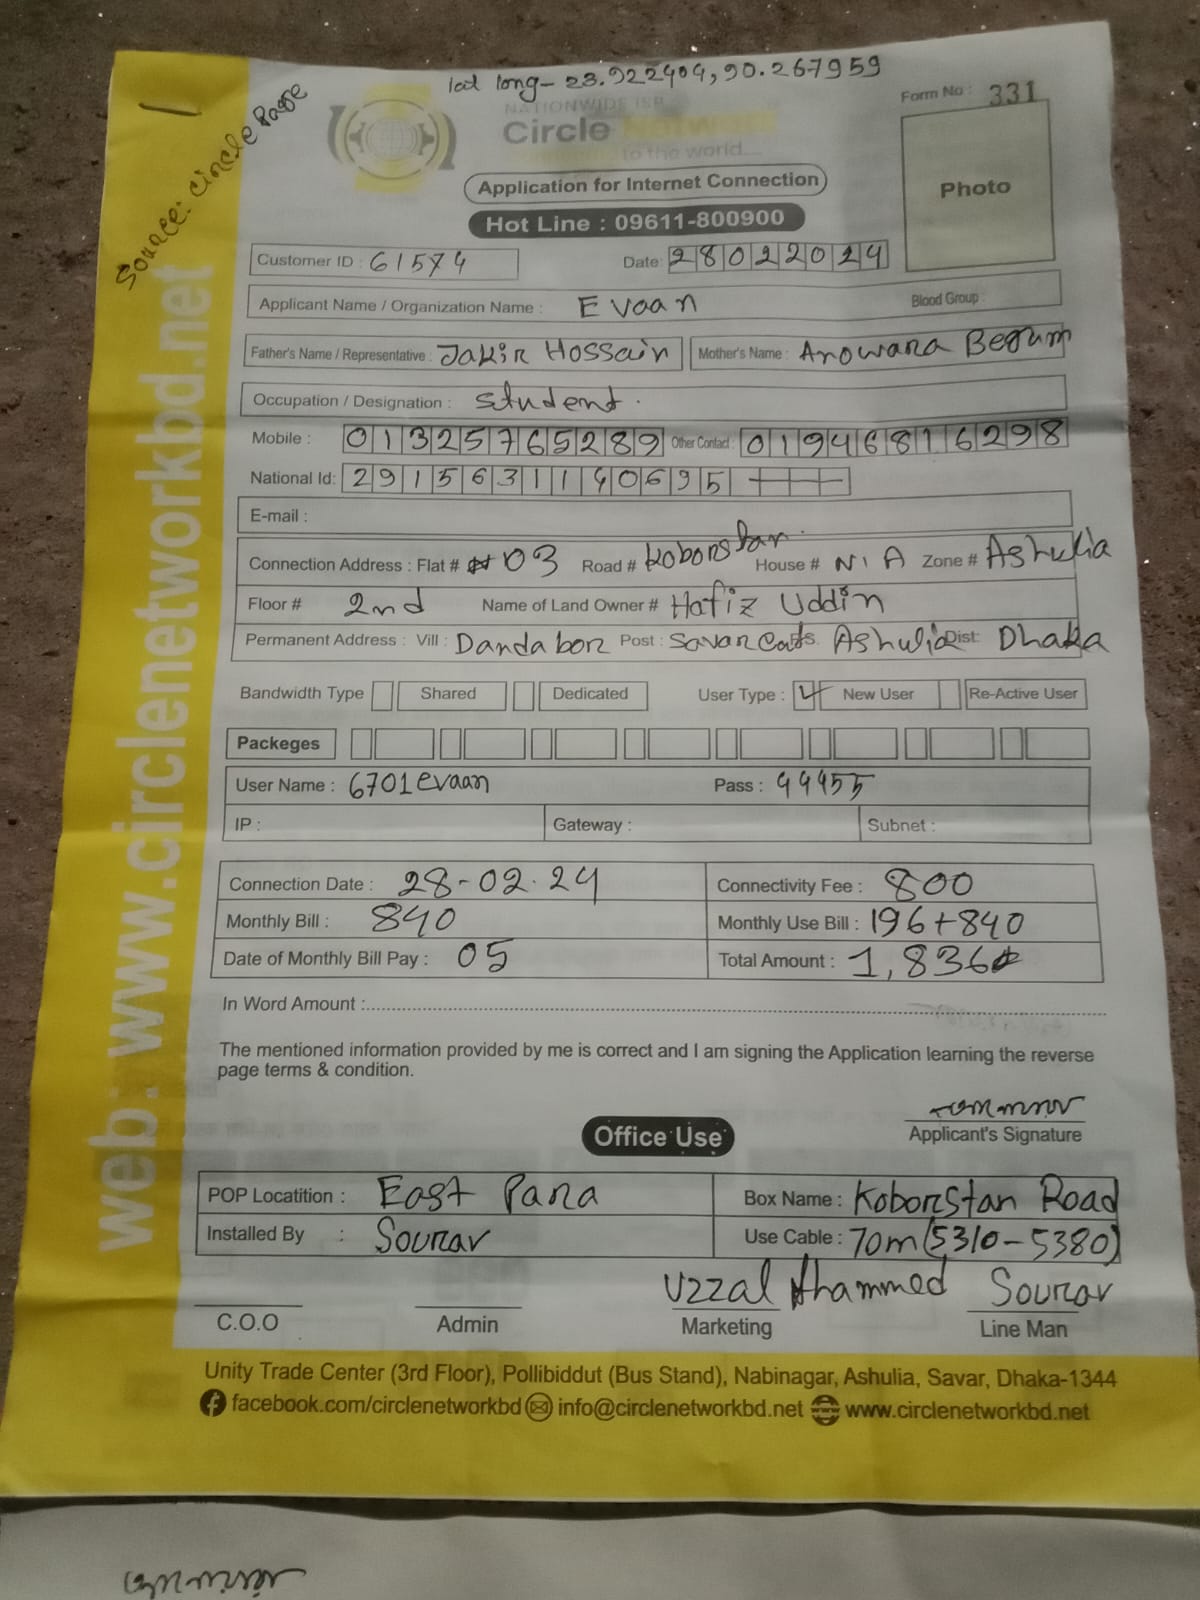 lat long- 23.922404, 90.267959
Form No : 331
Source: Circle Page
NATIONWIDE ISP
Circle Network
to the world...
Photo
Application for Internet Connection
Hot Line : 09611-800900
Customer ID : 61574 Date: 28022024
Applicant Name / Organization Name : Evaan Blood Group :
Father's Name / Representative : Jakir Hossain Mother's Name : Anowara Begum
Occupation / Designation : Student.
Mobile : 01325765289 Other Contact : 01946816298
National Id: 2915631140695
E-mail :
Connection Address : Flat # 03 Road # Koborstan House # N/A Zone # Ashulia
Floor # 2nd Name of Land Owner # Hafiz Uddin
Permanent Address : Vill : Dandabor Post : Savar Ps. Ashulia Dist: Dhaka
Bandwidth Type Shared Dedicated User Type : New User Re-Active User
Packeges
User Name : 6701evaan Pass : 44455
IP : Gateway : Subnet :
Connection Date : 28-02-24 Connectivity Fee : 800
Monthly Bill : 840 Monthly Use Bill : 196+840
Date of Monthly Bill Pay : 05 Total Amount : 1,836
In Word Amount :
The mentioned information provided by me is correct and I am signing the Application learning the reverse
page terms & condition.
Applicant's Signature
Office Use
POP Locatition : East Para Box Name : Koborstan Road
Installed By : Sourav Use Cable : 70m (5310-5380)
Uzzal Ahammed Sourav
C.O.O Admin Marketing Line Man
web: www.circlenetworkbd.net
Unity Trade Center (3rd Floor), Pollibiddut (Bus Stand), Nabinagar, Ashulia, Savar, Dhaka-1344
facebook.com/circlenetworkbd info@circlenetworkbd.net www.circlenetworkbd.net